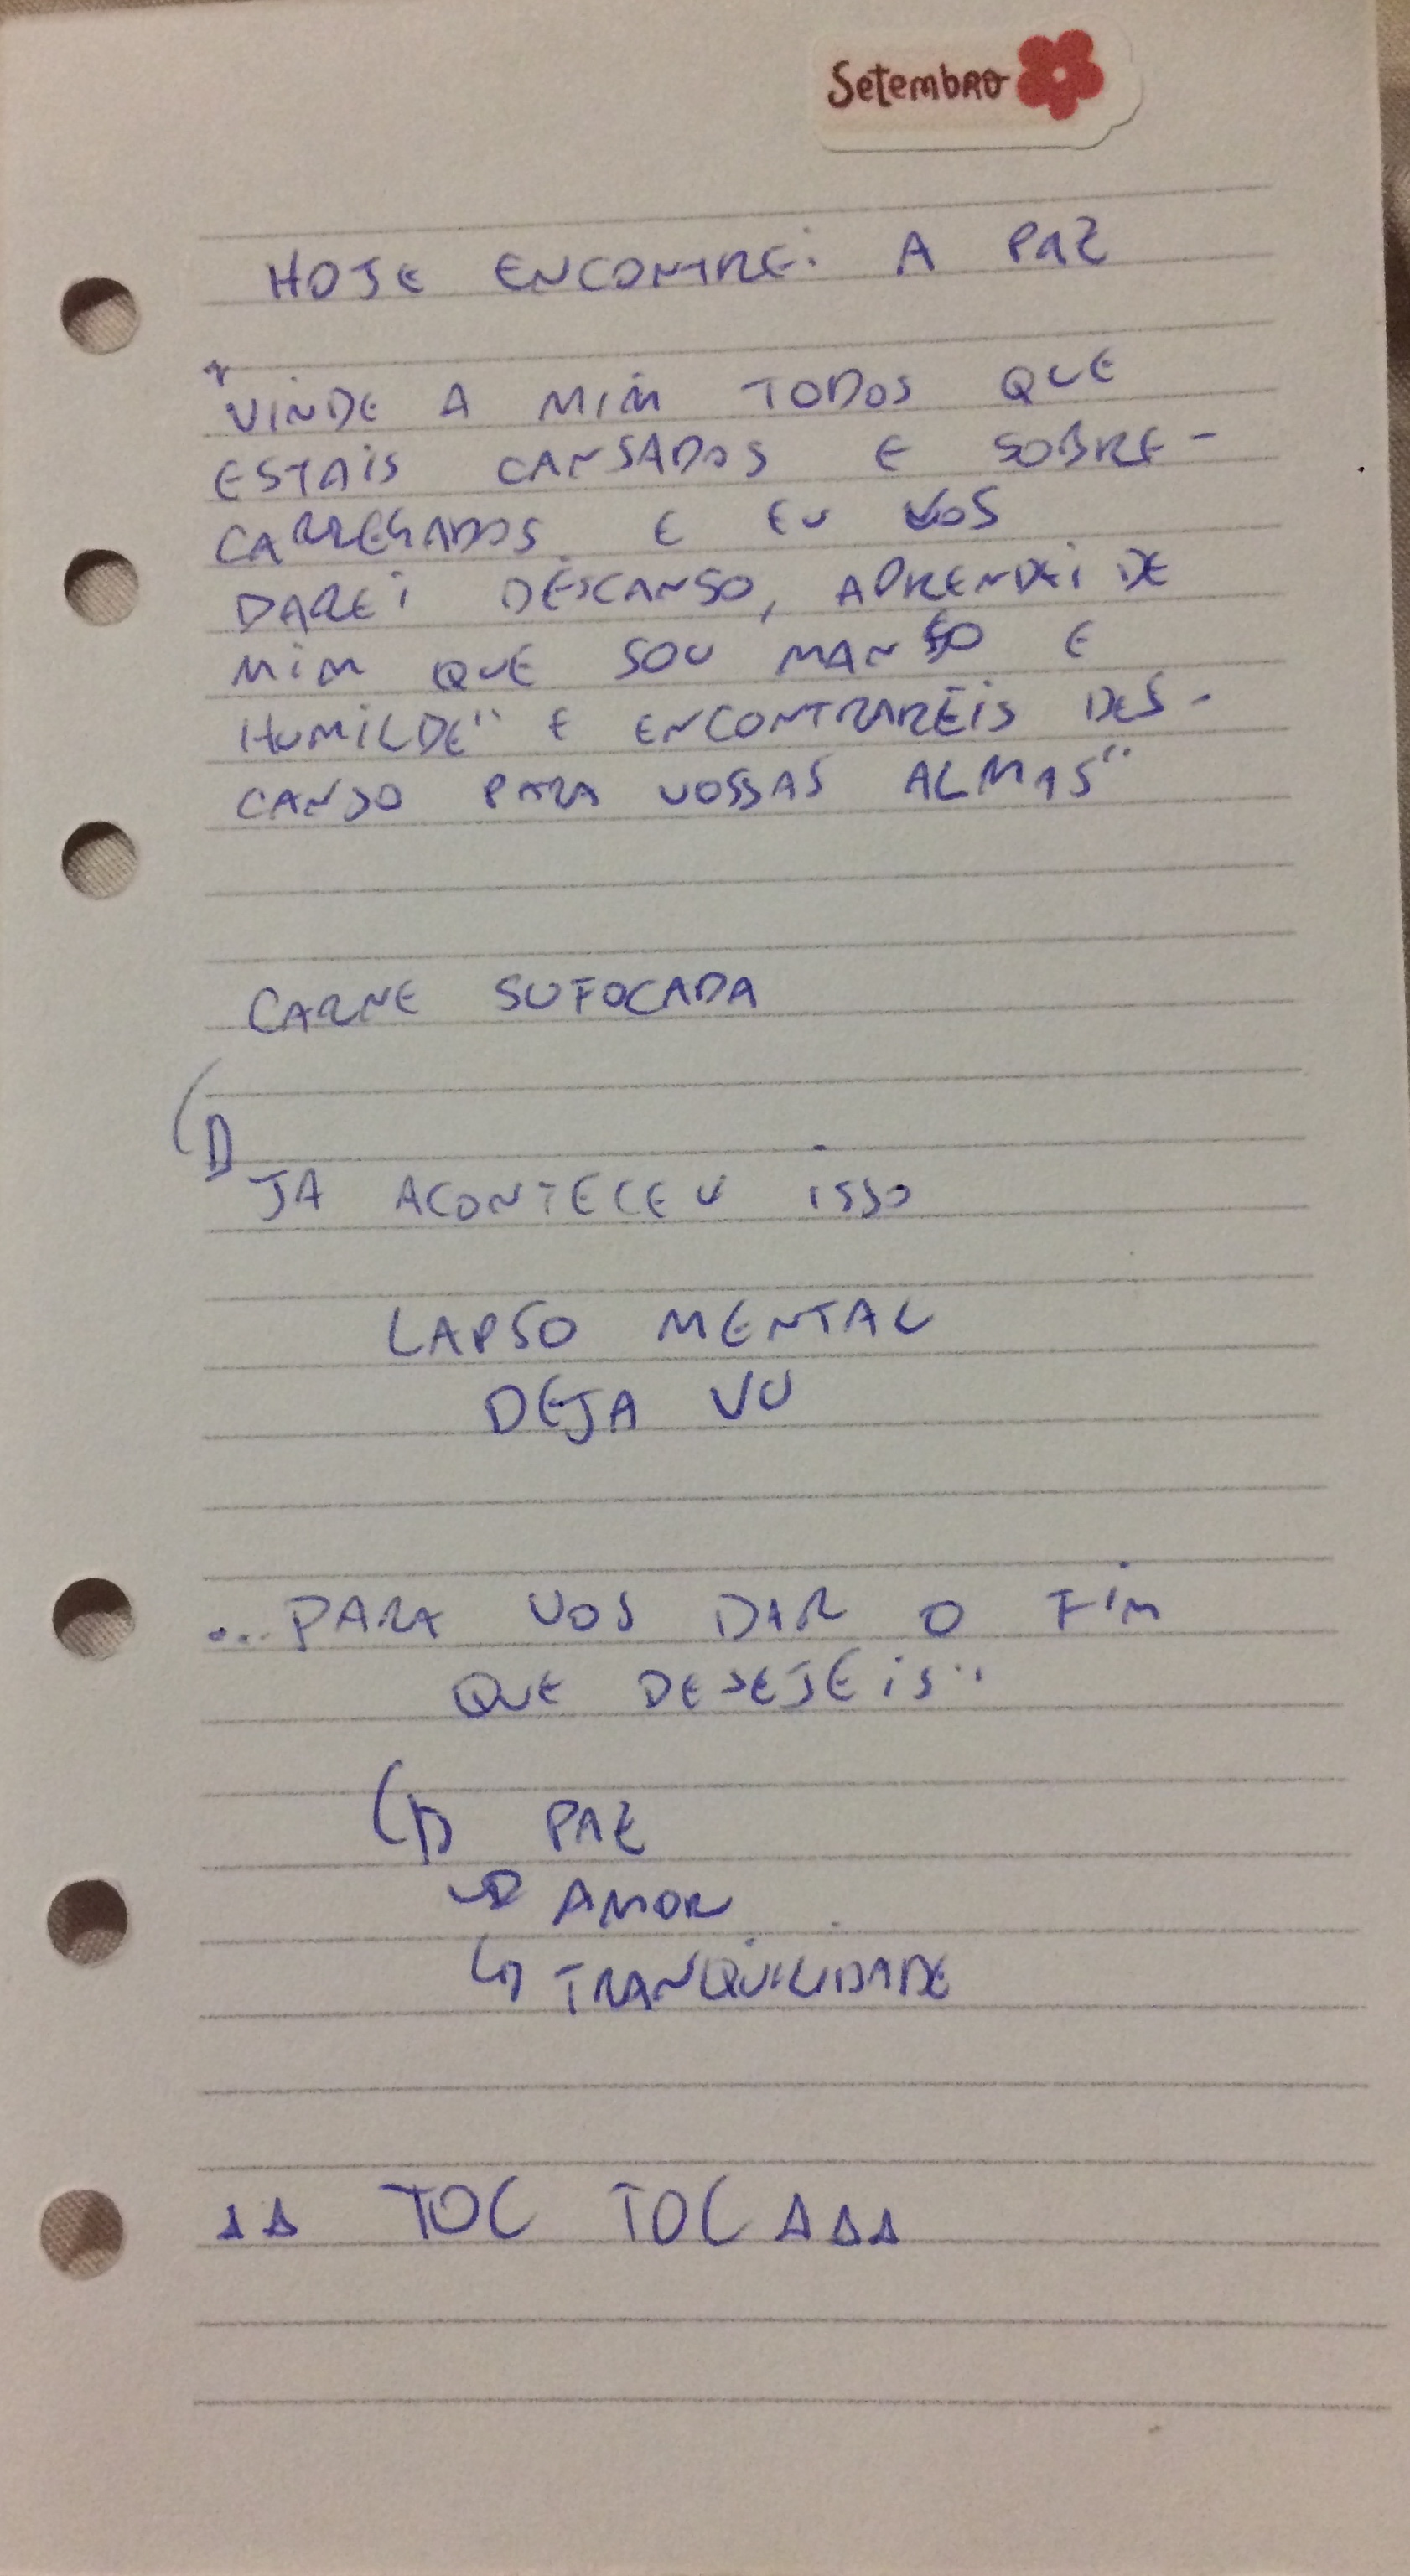 Setembro
HOJE ENCONTREI A PAZ
"VINDE A MIM TODOS QUE
ESTAIS CANSADOS E SOBRE-
CARREGADOS E EU VOS
DAREI DESCANSO, APRENDEI DE
MIM QUE SOU MANSO E
HUMILDE" E ENCONTRAREIS DES-
CANSO PARA VOSSAS ALMAS"
CARNE SUFOCADA
JA ACONTECEU ISSO
LAPSO MENTAL
DEJA VU
...PARA VOS DAR O FIM
QUE DESEJEIS"
PAZ
AMOR
TRANQUILIDADE
TOC TOC